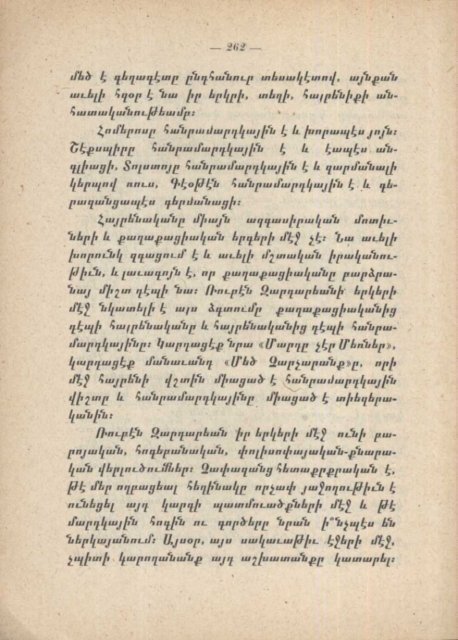 — 262 —
մեծ է գեղագէտը ընդհանուր տեսակէտով, այնքան
աւելի հզօր է նա իր երկրի, տեղի, հայրենիքի ան-
հատականութեամբ:
Հոմերոսը համրամարդկային է և խորապէս յոյն:
Շէքսպիրը համրամարդկային է և էապէս ան-
գլիացի, Տոլստոյը համրամարդկային է և զարմանալի
կերպով ռուս, Գէօթէն համրամարդկային է և գե-
րազանցապէս գերմանացի:
Հայրենականը միայն ազգասիրական մոտիւ-
ների և քաղաքացիական երգերի մէջ չէ: Նա աւելի
խորունկ զգացում է և աւելի մշտական իրականու-
թիւն, և լաւագոյն է, որ քաղաքացիականը բարձրա-
նայ միշտ դէպի նա: Ռուբէն Զարդարեանի երկերի
մէջ նկատելի է այս ձգտումը քաղաքացիականից
դէպի հայրենականը և հայրենականից դէպի համրա-
մարդկայինը: Կարդացէք նրա «Մարդը չէր Մեռներ»,
կարդացէք մանաւանդ «Մեծ Չարչարանք»ը, որի
մէջ հայրենի վշտին միացած է համրամարդկային
վիշտը և համրամարդկայինը միացած է տիեզերա-
կանին:
Ռուբէն Զարդարեան իր երկերի մէջ ունի բա-
րոյական, հոգեբանական, փոլիսոփայական-քնարա-
կան վերլուծումներ: Չափազանց հետաքրքրական է,
թէ մեր ողբացեալ հեղինակը որչափ յաջողութիւն է
ունեցել այդ կարգի պատմուածքների մէջ և թէ
մարդկային հոգին ու գործերը նրան ի՞նչպէս են
ներկայանում: Այսօր, այս սակաւաթիւ էջերի մէջ,
չպիտի կարողանանք այդ աշխատանքը կատարել: